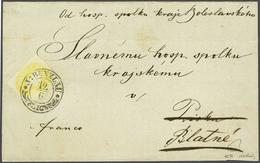 Od hosp. spolku kraje Boleslavského
Slavnému hosp. spolku
krajskému
v
franco
Písku
Blatné
J:BUNZLAU
12
6